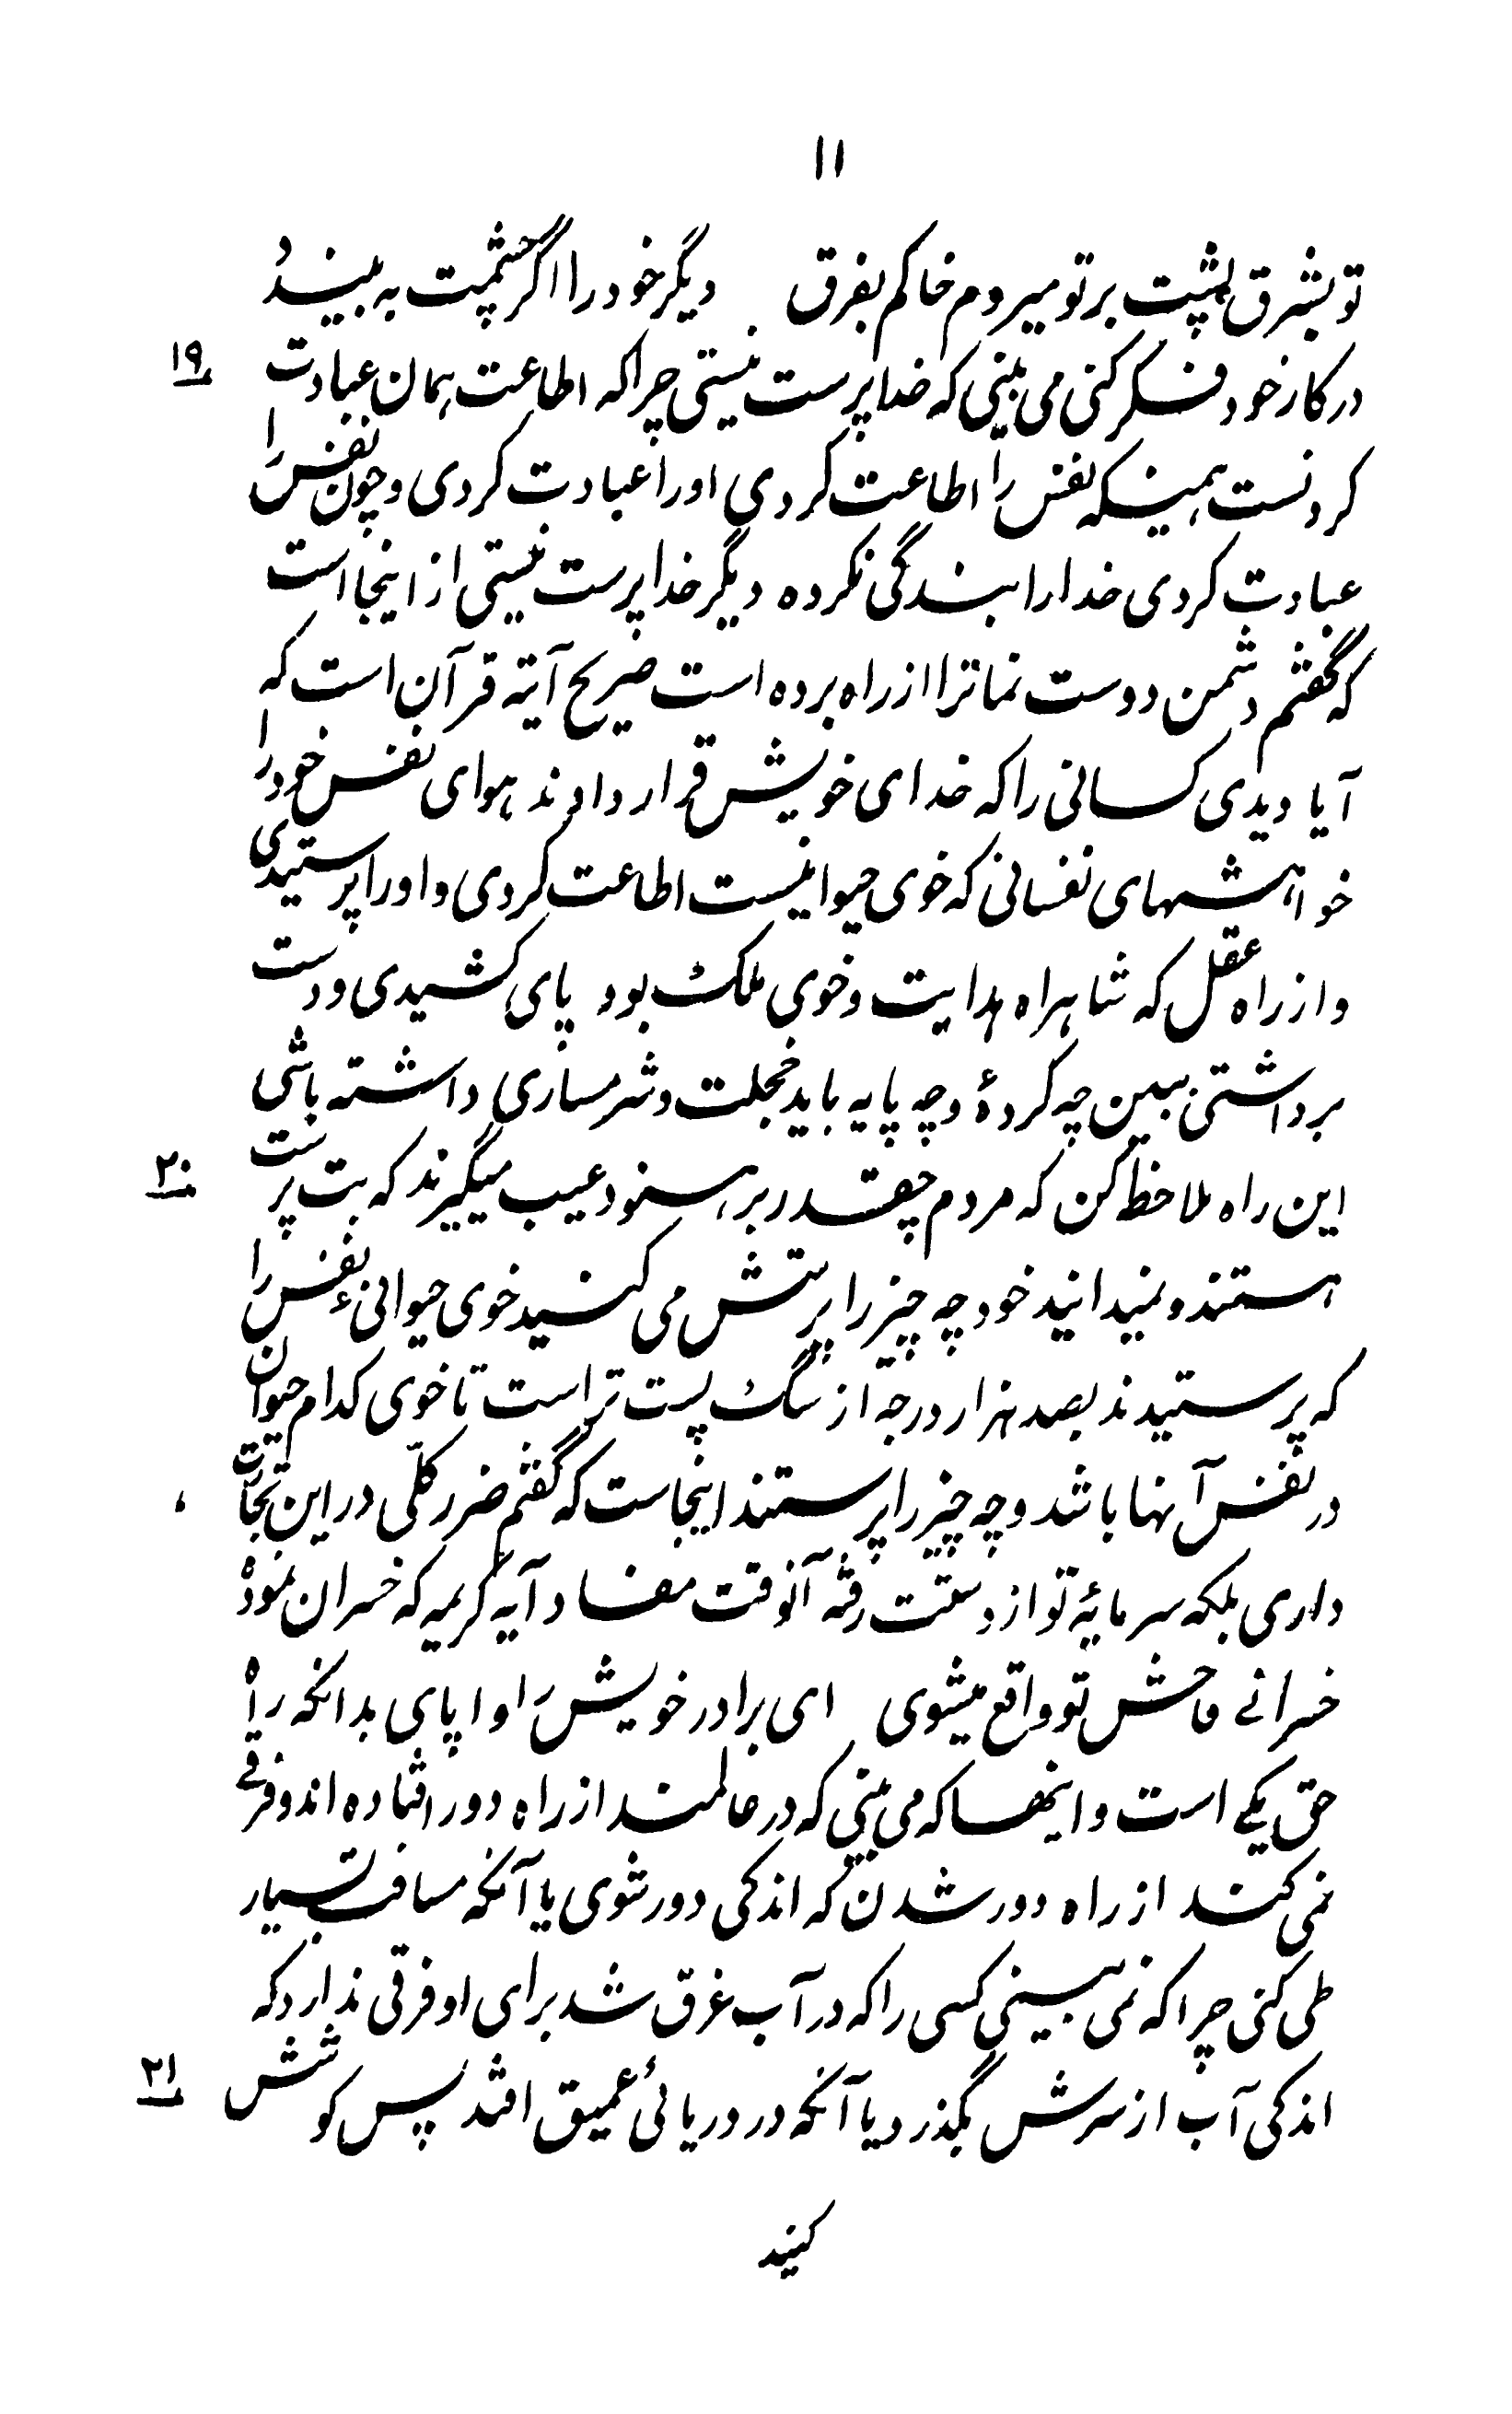 ۱۱
تو بشرق پشت بر تو میروم خاکم بفرق دیگر خود را اگر چشمت به بیند
۱۹
در کار خود فکر کنی می بینی که خدا پرست نیستی چرا که اطاعت همان عبادت
کردنست همینکه نفس را اطاعت کردی او را عبادت کردی و چون نفس را
عبادت کردی خدا را بندگی نکرده دیگر خدا پرست نیستی از اینجا است
که گفتم دشمن دوست نما ترا از راه برده است صریح آیهٔ قرآن است که
آیا دیدی کسانی را که خدای خویش قرار دادند هوای نفس خود را
خواهشهای نفسانی که خوی حیوانیست اطاعت کردی و او را پرستیدی
و از راه عقل که شاهراه هدایت و خوی ملک بود پای کشیدی و دست
برداشتی ببین چه کردهٔ و چه پایه باید خجلت و شرمساری داشته باشی
۲۰
این راه ملاحظه کن که مردم چقدر بر هنود عیب میگیرند که بت پرست
هستند و نمیدانید خود چه چیز را پرستش می کنید خوی حیوانی نفس را
که پرستیدند بصد هزار درجه از سگ پست تر است تا خوی کدام حیوان
در نفس آنها باشد و چه چیز را پرستند اینجاست که گفتم ضرر کلّی در این تجارت
داری بلکه سرمایهٔ تو از دستت رفته آنوقت مفاد آیه کریمه که خسران نمود
خسرانی فاحش تو واقع میشوی ای برادر خویش را واپای بدانکه راه
حق یکی است و اینها که می بینی که در عالمند از راه دور افتاده اند و فرقی
نمی کند از راه دور شدن که اندکی دور شوی یا آنکه مسافت بسیار
طی کنی چرا که نمی بینی کسی را که در آب غرق شد برای او فرقی ندارد که
۲۱
اندکی آب از سرش بگذرد یا آنکه در دریائی عمیق افتد پس کوشش
کنید